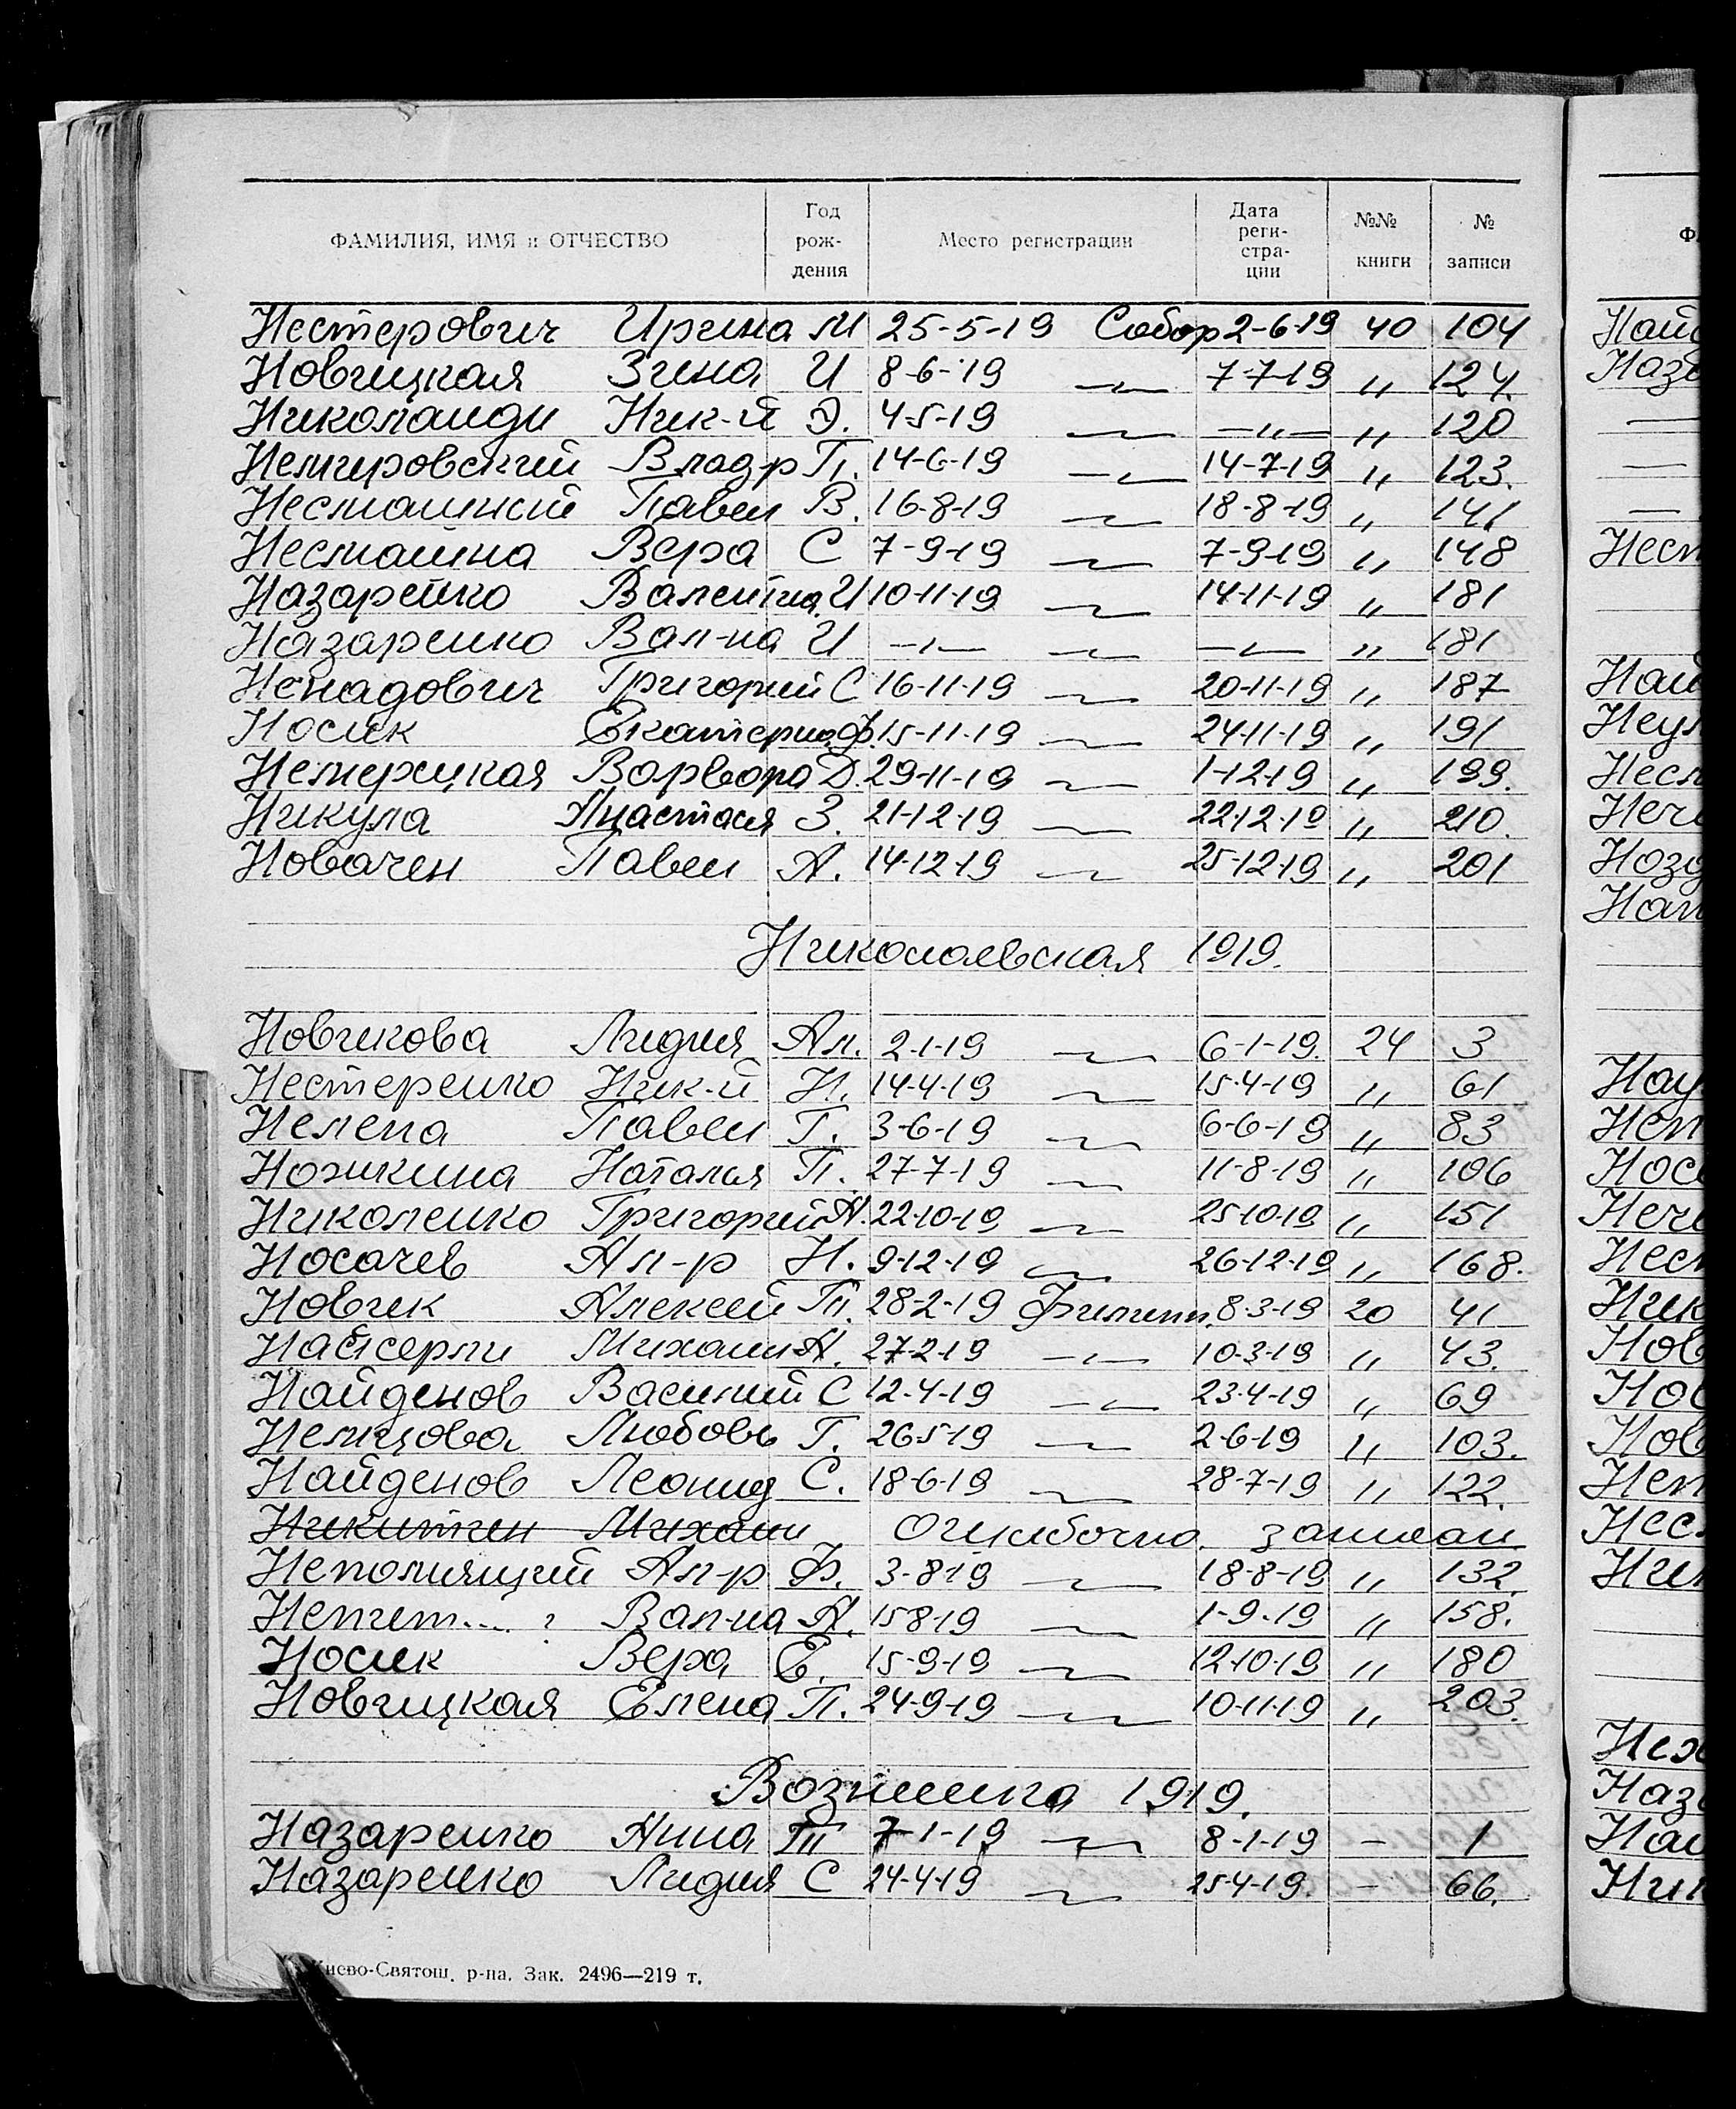 ФАМИЛИЯ, ИМЯ и ОТЧЕСТВО Год рож-дения Место регистрации Дата реги-стра-ции №№ книги № записи
Нестерович Ирина М 25-5-19 Собор 2-6-19 40 104
Новицкая Зина И 8-6-19 —"— 7-7-19 " 124.
Николаиди Ник-й Э. 4-5-19 —"— —"— " 120
Немировский Влад-р П. 14-6-19 —"— 14-7-19 " 123.
Несмашний Павел В. 16-8-19 —"— 18-8-19 " 141
Несмашна Вера С 7-9-19 —"— 7-9-19 " 148
Назаренко Валентина И 10-11-19 —"— 14-11-19 " 181
Назаренко Вал-на И —"— —"— —"— " 181
Ненадович Григорий С 16-11-19 —"— 20-11-19 " 187
Носик Екатерина Ф. 15-11-19 —"— 24-11-19 " 191
Немерицкая Варвара Д. 29-11-19 —"— 1-12-19 " 199.
Никула Анастасия З. 21-12-19 —"— 22-12-19 " 210.
Новачен Павел А. 14-12-19 —"— 25-12-19 " 201
Николаевская 1919.
Новикова Лидия Ал. 2-1-19 —"— 6-1-19. 24 3
Нестеренко Ник-й Н. 14-4-19 —"— 15-4-19 " 61
Нелепа Павел Г. 3-6-19 —"— 6-6-19 " 83
Ножкина Наталья П. 27-7-19 —"— 11-8-19 " 106
Николенко Григорий А. 22-10-19 —"— 25-10-19 " 151
Носачев Ал-р Н. 9-12-19 —"— 26-12-19 " 168.
Новик Алексей П. 28-2-19 Филипп. 8-3-19 20 41
Михаил А. 27-2-19 —"— 10-3-19 " 43.
Найденов Василий С 12-4-19 —"— 23-4-19 " 69
Немцова Любовь Г. 26-5-19 —"— 2-6-19 " 103.
Найденов Леонид С. 18-6-19 —"— 28-7-19 " 122.
Никитин Михаил Ошибочно записан
Неполнящий Ал-р Ф. 3-8-19 —"— 18-8-19 " 132.
Непит.... ? Вал-на А. 15-8-19 —"— 1-9-19 " 158.
Носик Вера Е. 15-9-19 —"— 12-10-19 " 180
Новицкая Елена П. 24-9-19 —"— 10-11-19 " 203.
1919.
Назаренко Анна П 7-1-19 —"— 8-1-19 - 1
Назаренко Лидия С 24-4-19 —"— 25-4-19. - 66.
Киево-Святош. р-на. Зак. 2496—219 т.